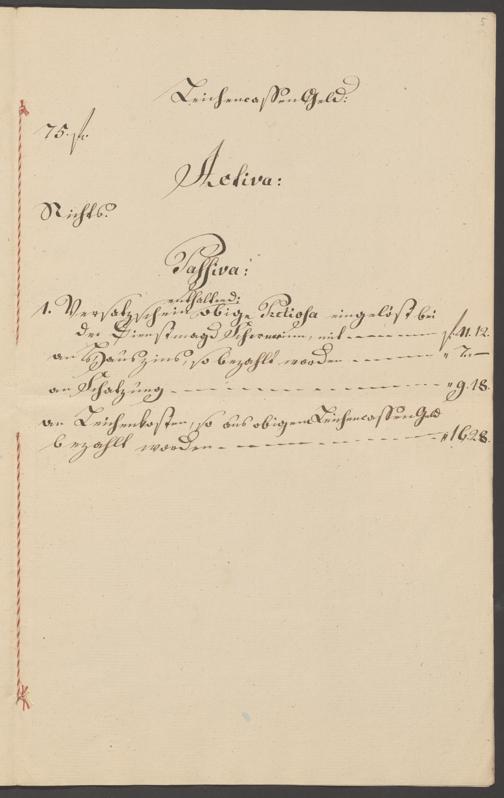 5
Leichencassen Geld:
75. fl.
Activa:
Nichts.
Passiva:
enthaltend:
1. Versatzschein obige Pretiosa eingelöst bei
der Dienstmagd mit fl 41.12.
an Hauszins, so bezahlt worden " 7.—
an Schatzung " 9.18.
an Leichenkosten, so aus obigem Leichencassen Geld
bezahlt worden " 16.28.